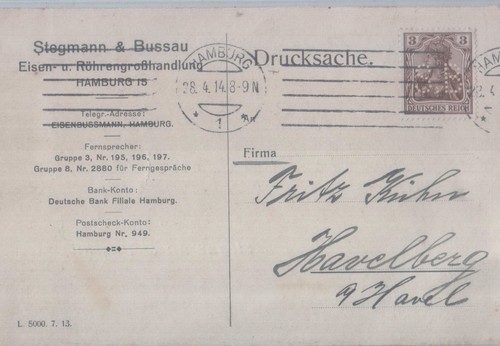 Stegmann & Bussau
Eisen- u. Röhrengroßhandlung
HAMBURG 15
Telegr.-Adresse:
EISENBUSSMANN, HAMBURG.
Fernsprecher:
Gruppe 3, Nr. 195, 196, 197.
Gruppe 8, Nr. 2880 für Ferngespräche
Bank-Konto:
Deutsche Bank Filiale Hamburg.
Postscheck-Konto:
Hamburg Nr. 949.
L. 5000. 7. 13.
HAMBURG
28.4.14.8-9N
* 1
Drucksache.
3 3
DEUTSCHES REICH
HAM
28.4
*
Firma
Fritz Kuhn
Havelberg
a/Havel